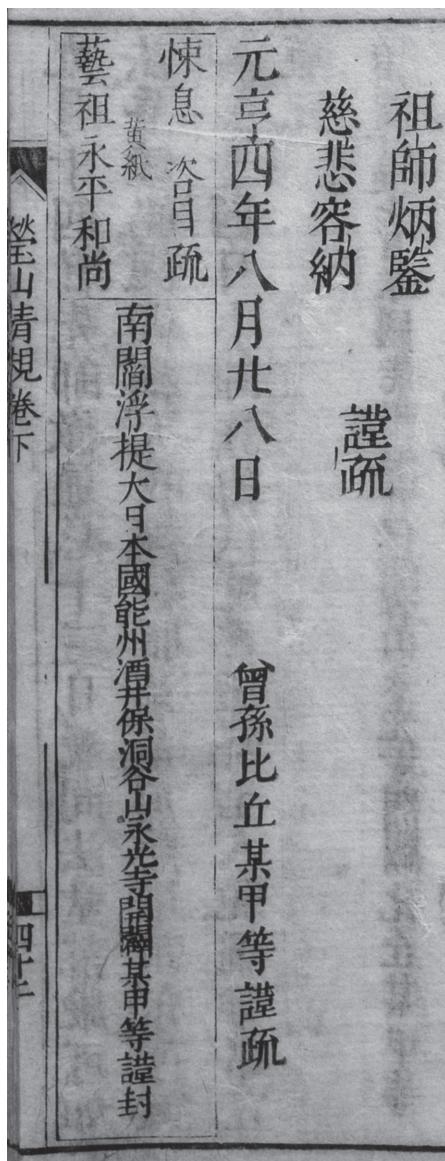 祖師炳鑒
慈悲容納 謹疏
元亨四年八月廿八日 曾孫比丘某甲等謹疏
悚息 詻目疏
黄紙
藝祖永平和尚
南閻浮提大日本國能州酒井保洞谷山永光寺開闢某甲等謹封
瑩山清規卷下
四十二